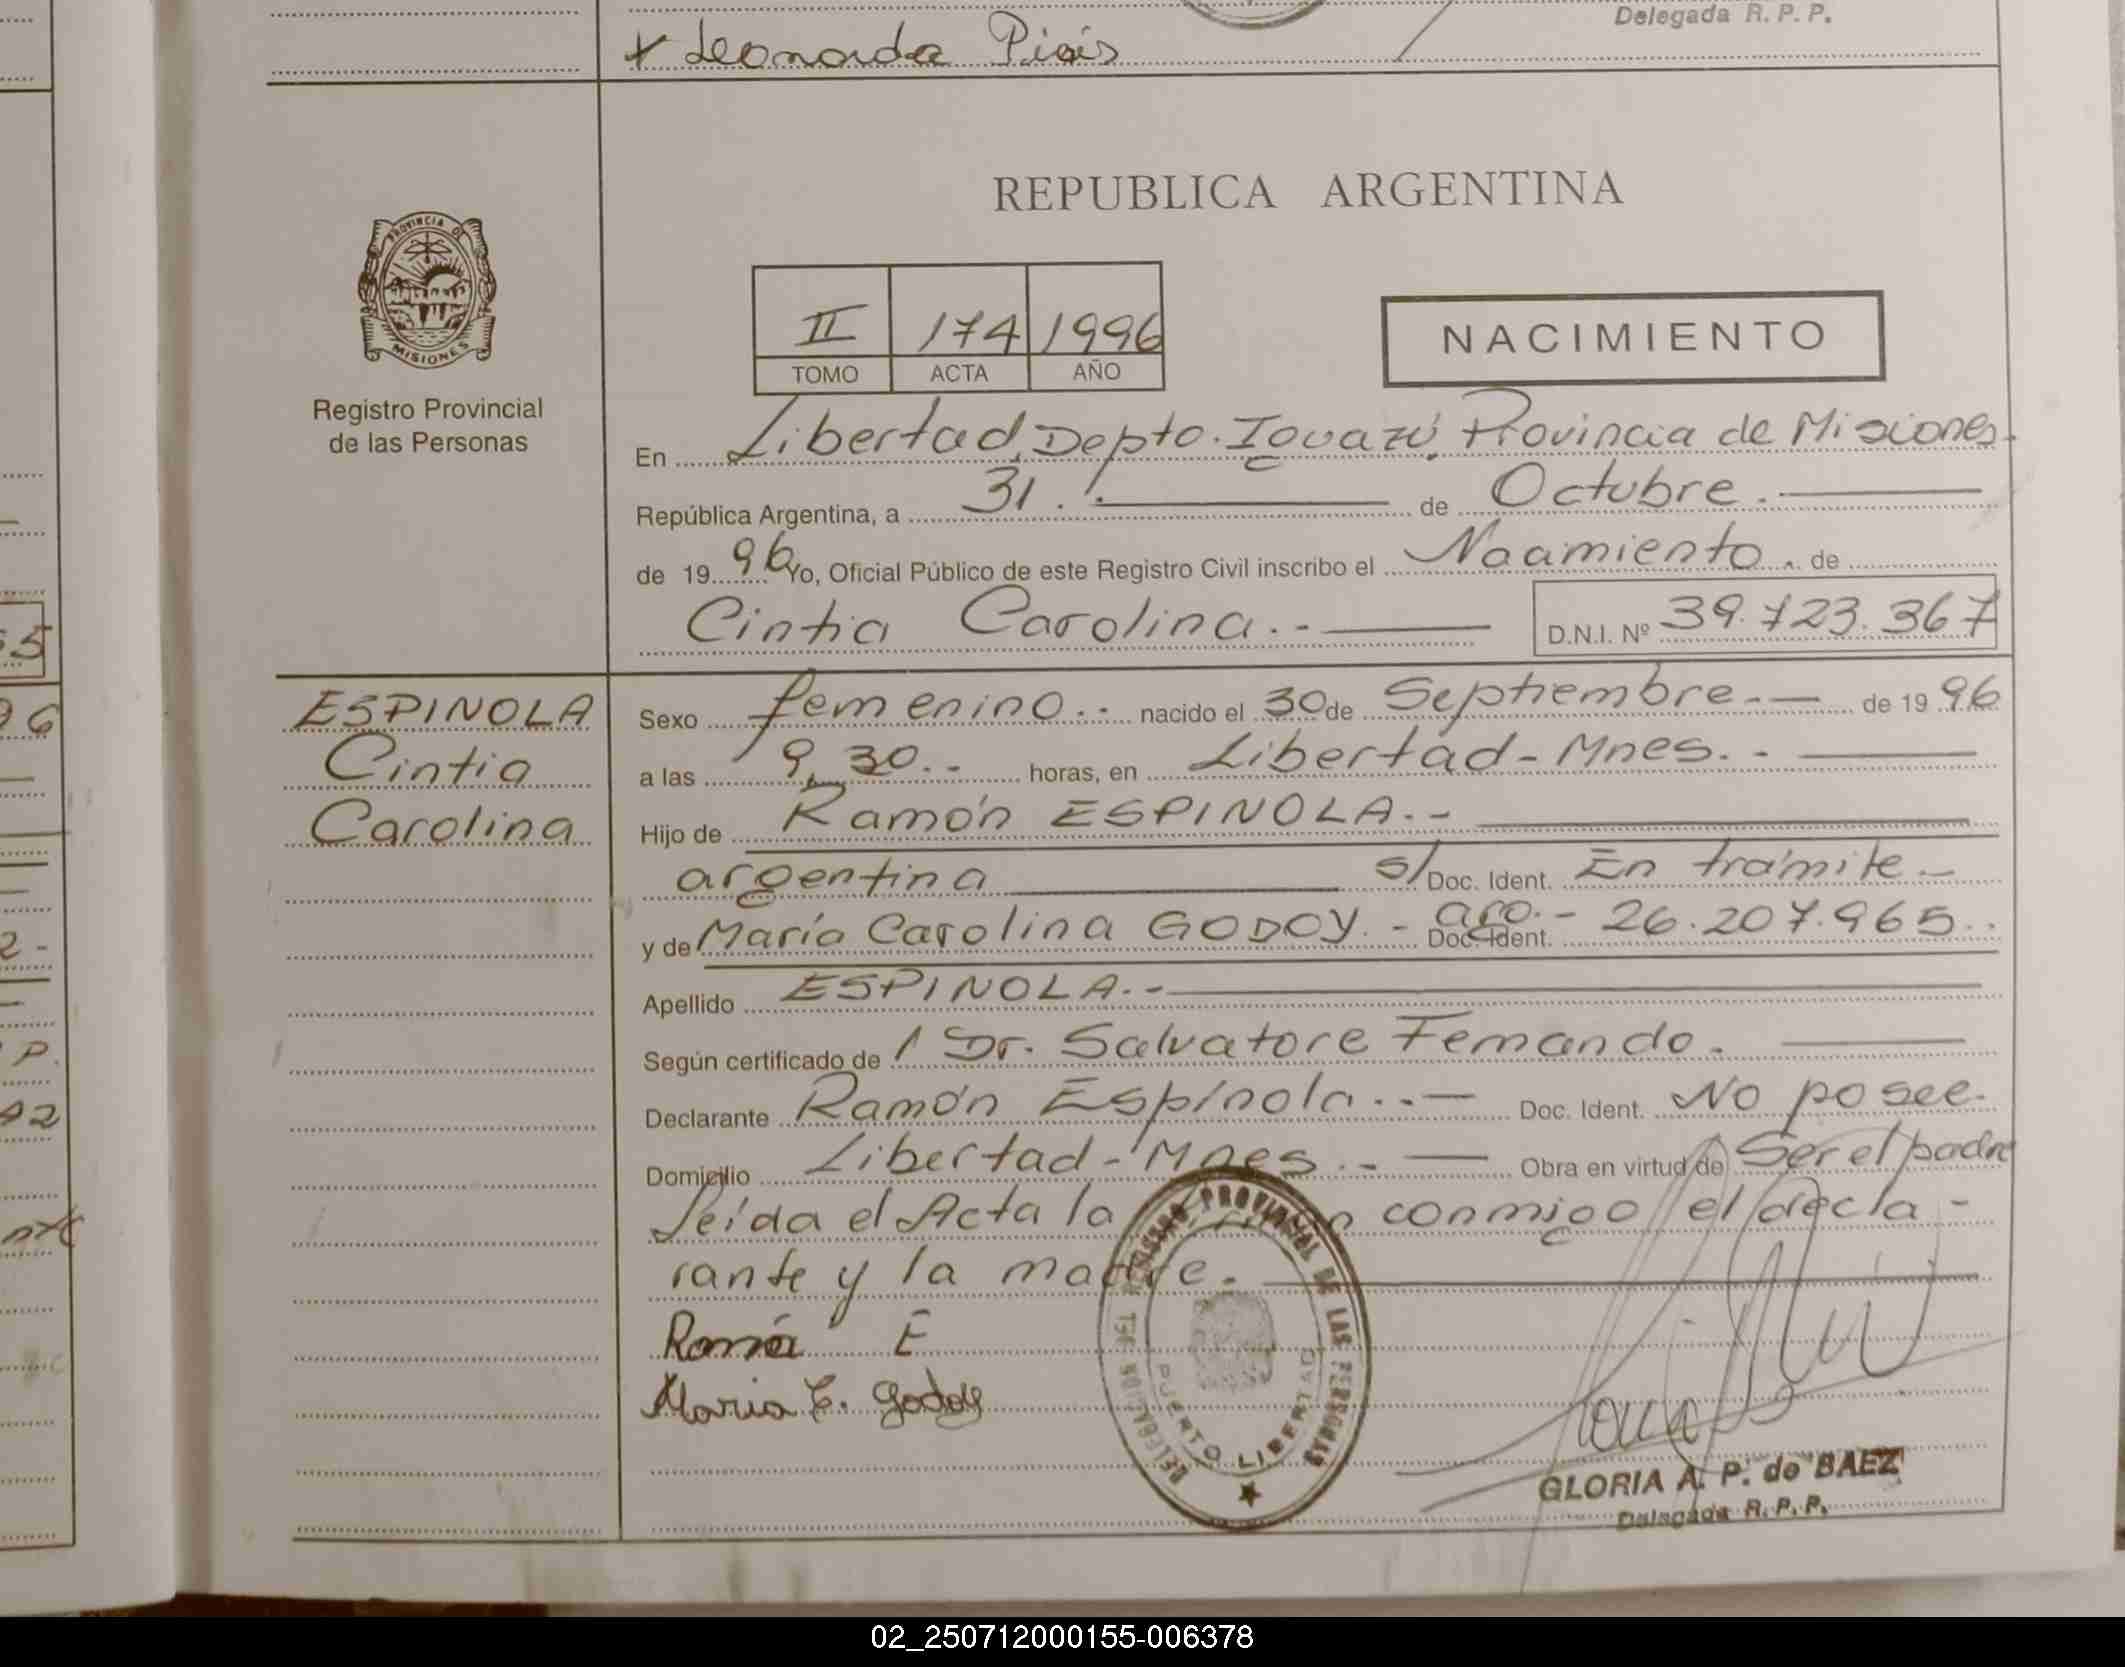 Delegada R. P. P.
+ Leonarda
REPUBLICA ARGENTINA
PROVINCIA DE
MISIONES
Registro Provincial
de las Personas
II 174 1996
TOMO ACTA AÑO
NACIMIENTO
En Libertad, Depto. Iguazú, Provincia de Misiones.
República Argentina, a 31.- de Octubre.-
de 1996 Yo, Oficial Público de este Registro Civil inscribo el Nacimiento.. de
Cintia Carolina.- D.N.I. Nº 39.723.367
ESPINOLA
Cintia
Carolina
Sexo femenino.- nacido el 30 de Septiembre.- de 1996
a las 9,30.- horas, en Libertad-Mnes.-
Hijo de Ramón ESPINOLA.-
argentina s/ Doc. Ident. En trámite-
y de María Carolina GODOY.- arg.- Doc. Ident. 26.207.965.
Apellido ESPINOLA.-
Según certificado de / Dr. Salvatore Fernando.
Declarante Ramón Espínola.- Doc. Ident. No posee.
Domicilio Libertad-Mnes.- Obra en virtud de Ser el padre
Leída el Acta la firman conmigo el decla-
rante y la madre.-
Ramón E
Maria C. Godoy
DELEGACION DEL REGISTRO PROVINCIAL DE LAS PERSONAS
PUERTO LIBERTAD
GLORIA A. P. de BAEZ
Delegada R. P. P.
55
96
2-
P.
02
02_250712000155-006378